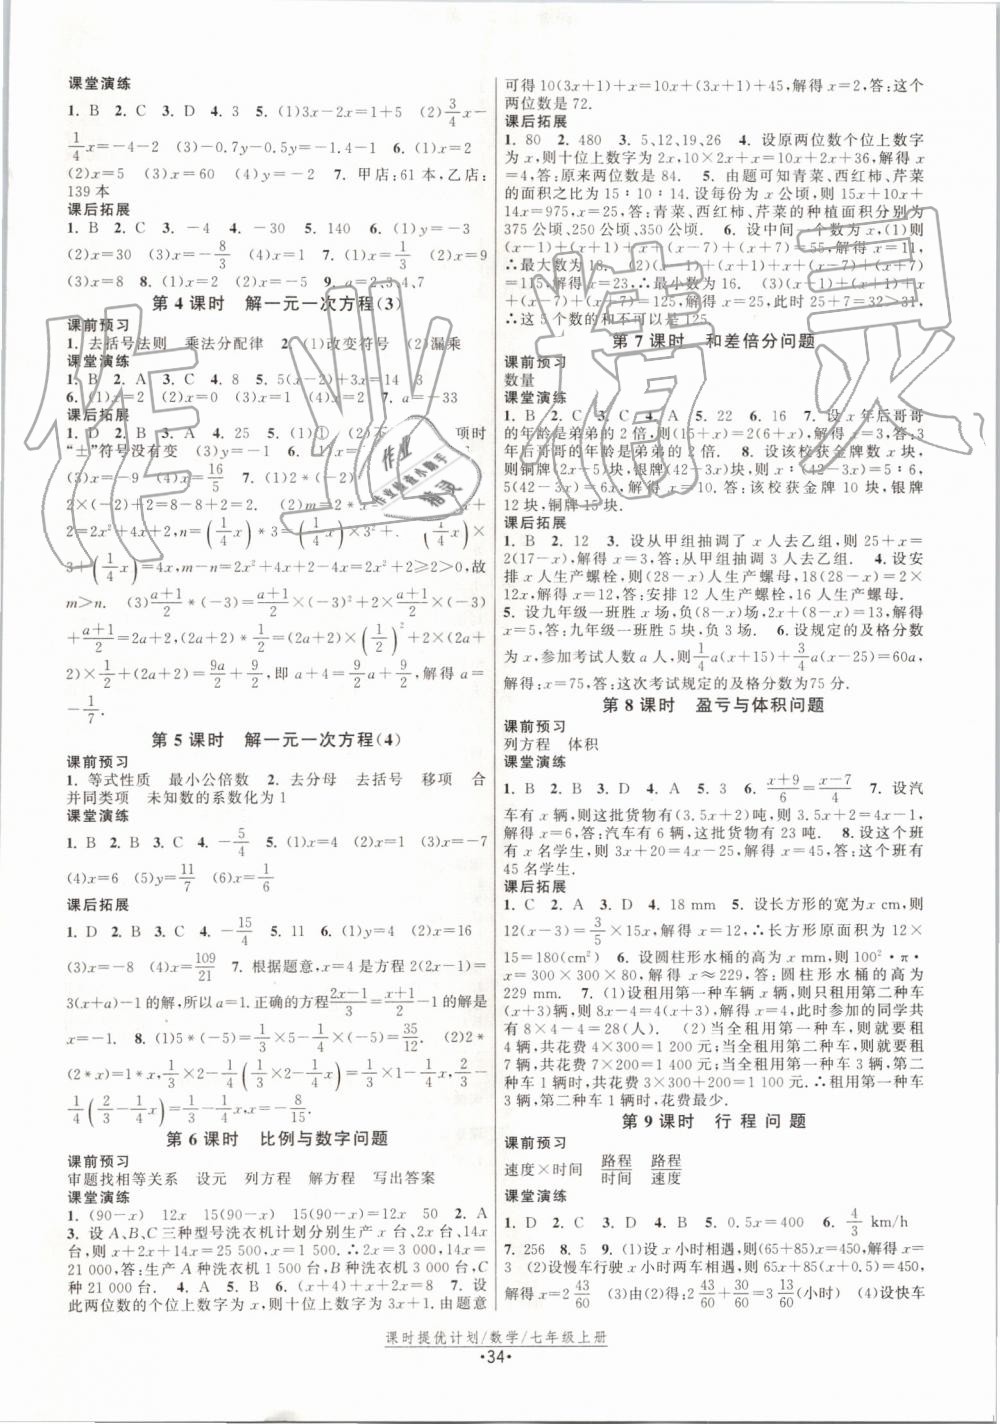 课堂演练
1. B 2. C 3. D 4. 3 5. (1)3x-2x=1+5 (2)3/4x-
1/4x=-4-2 (3)-0.7y-0.5y=-1.4-1 6. (1)x=2
(2)x=5 (3)x=60 (4)y=-2 7. 甲店:61本,乙店:
139本
课后拓展
1. B 2. C 3. -4 4. -30 5. 140 6. (1)y=-3
(2)x=30 (3)x=-8/3 (4)x=1 7. (1)x=1/3 (2)x=9
(3)x=-1 8. (1)x=2 (2)x=-5 9. a=2,3,4,7
第4课时 解一元一次方程(3)
课前预习
1. 去括号法则 乘法分配律 2. (1)改变符号 (2)漏乘
课堂演练
1. B 2. A 3. C 4. 8 5. 5(x-2)+3x=14 3
6. (1)x=2 (2)x=0 (3)x=1 7. a=-33
课后拓展
1. D 2. B 3. A 4. 25 5. (1)① (2)不 项时
“土”符号没有变 (3)x=-
(3)x=-9 (4)x=16/5 7. (1)2*(-2)=
2×(-2)+2=8-8+2=2. (2)m=2*x=
2=2x²+4x+2,n=(1/4x)*3=(1/4x)×3²+2.
3+(1/4x)=4x,m-n=2x²+4x+2-4x=2x²+2≥2>0,故
m>n. (3)a+1/2*(-3)=a+1/2×(-3)²+2×a+1/2×(-3)
+a+1/2=2a+2,(2a+2)*1/2=(2a+2)×(1/2)²+2×(2a+
2)×1/2+(2a+2)=9a/2+9/2,即a+4=9/2a+9/2,解得a=
-1/7.
第5课时 解一元一次方程(4)
课前预习
1. 等式性质 最小公倍数 2. 去分母 去括号 移项 合
并同类项 未知数的系数化为1
课堂演练
1. B 2. B 3. C 4. -5/4 5. (1)x=4 (2)x=1 (3)x=-7
(4)x=6 (5)y=11/7 (6)x=1/6
课后拓展
1. D 2. B 3. C 4. -15/4 5. 11 6. (1)y=4 (2)x=16
(3)x=-8 (4)x=109/21 7. 根据题意,x=4是方程2(2x-1)=
3(x+a)-1的解,所以a=1.正确的方程2x-1/3=x+1/2-1的解是
x=-1. 8. (1)5*(-5)=1/3×5-1/4×(-5)=35/12. (2)2*
(2*x)=1*x,1/3×2-1/4(1/3×2-1/4x)=1/3×1-1/4x,
1/4(2/3-1/4x)=1/3+1/4x,x=-8/15.
第6课时 比例与数字问题
课前预习
审题找相等关系 设元 列方程 解方程 写出答案
课堂演练
1. (90-x) 12x 15(90-x) 15(90-x)=12x 50 2. A
3. 设A、B、C三种型号洗衣机计划分别生产x台、2x台、14x
台,则x+2x+14x=25 500.解得x=1 500.∴2x=3 000,14x=
21 000.答:生产A种洗衣机1 500台,B种3 000台,C
种21 000台. 4. A 5. B 6. (x+4)+x+2x=8 7. 设
此两位数的个位上数字为x,则十位上数字为3x+1.由题意
可得10(3x+1)+x=10x+(3x+1)+45,解得x=2,答:这个
两位数是72.
课后拓展
1. 80 2. 480 3. 5、12、19、26 4. 设原两位数个位上数字
为x,则十位上数字为2x,10×2x+x=10x+2x+36,解得x
=4,答:原来两位数是84. 5. 由题可知青菜、西红柿、芹菜
的面积之比为15∶10∶14.设每份为x公顷,则15x+10x+
14x=975,x=25,答:青菜、西红柿、芹菜的种植面积分别为
375公顷、250公顷、350公顷. 6. 设中间一个数为x,(1)则
(x-1)+(x+1)+x+(x-7)+(x+7)=55,解得x=11,
∴最大数为18. (2)(x-1)+(x+1)+x+(x-7)+(x+7)
=115,解得x=23,∴最小数为16. (3)
=125,解得x=25,此时25+7=32>31,
∴这5个数的和不可以是125.
第7课时 和差倍分问题
课前预习
数量
课堂演练
1. B 2. C 3. C 4. A 5. 22 6. 16 7. 设x年后哥哥
的年龄是弟弟的2倍,则(15+x)=2(6+x),解得x=3,答:3
年后哥哥的年龄是弟弟的2倍. 8. 设该校获金牌数x块,
则铜牌(5x-2)块,银牌(42-6x)块,x∶(42-6x)=5∶6,
5(42-6x)=6x,解得x=5,答:该校获金牌5块,银牌
12块,铜牌15块.
课后拓展
1. B 2. 12 3. 设从甲组抽调了x人去乙组,则25+x=
2(17-x),解得x=3,答:从甲组抽调3人去乙组. 4. 设安
排x人生产螺栓,(28-x)人生产螺母,18(28-x)=2×
12x,解得x=12,答:安排12人生产螺栓,16人生产螺母.
5. 设九年级一班胜x场,负(8-x)场,2x+(8-x)=13,解得
x=5,答:九年级一班胜5块,负3场. 6. 设规定的及格分数
为x,参加考试人数a人,则1/4a(x+15)+3/4a(x-25)=60a,
解得:x=75,答:这次考试规定的及格分数为75分.
第8课时 盈亏与体积问题
课前预习
列方程 体积
课堂演练
1. B 2. B 3. D 4. A 5. 3 6. x+9/6=x-7/4 7. 设汽
车有x辆,则这批货物有(3.5x+2)吨,则3.5x+2=4x-1,
解得x=6,答:汽车有6辆,这批货物有23吨. 8. 设这个班
有x名学生,则3x+20=4x-25,解得x=45,答:这个班有
45名学生.
课后拓展
1. C 2. A 3. D 4. 18 mm 5. 设长方形的宽为x cm,则
12(x-3)=3/5×15x,解得x=12,∴长方形原面积为12×
15=180(cm²) 6. 设圆柱形水桶的高为x mm,则100²·π·
x=300×300×80,解得x≈229,答:圆柱形水桶的高为
229 mm. 7. (1)设租用第一种车辆x辆,则只租用第二种车
(x+3)辆,则8x-4=4(x+3),解得x=4,此时参加的同学共
有8×4-4=28(人). (2)当全租用第一种车,则就要租
4辆,共花费4×300=1 200元;当全租用第二种车,则就要租
7辆,共花费7×200=1 400元;当租用第一种车3辆,第二
种车1辆,则共花费3×300+200=1 100元.∴租用第一种车3辆,
第二种车1辆时,花费最少.
第9课时 行程问题
课前预习
速度×时间 路程/时间 路程/速度
课堂演练
1. D 2. C 3. D 4. B 5. 0.5x=400 6. 4/3 km/h
7. 256 8. 5 9. (1)设x小时相遇,则(65+85)x=450,解得x=
3 (2)设慢车行驶x小时两车相遇,则65x+85(x+0.5)=450,
解得x=2 43/60 (3)由(2)得:2 43/60+30/60=3 13/60(小时) (4)设快车
课时提优计划/数学/七年级上册
·34·
作业精灵
作业
作业检查小助手
精灵